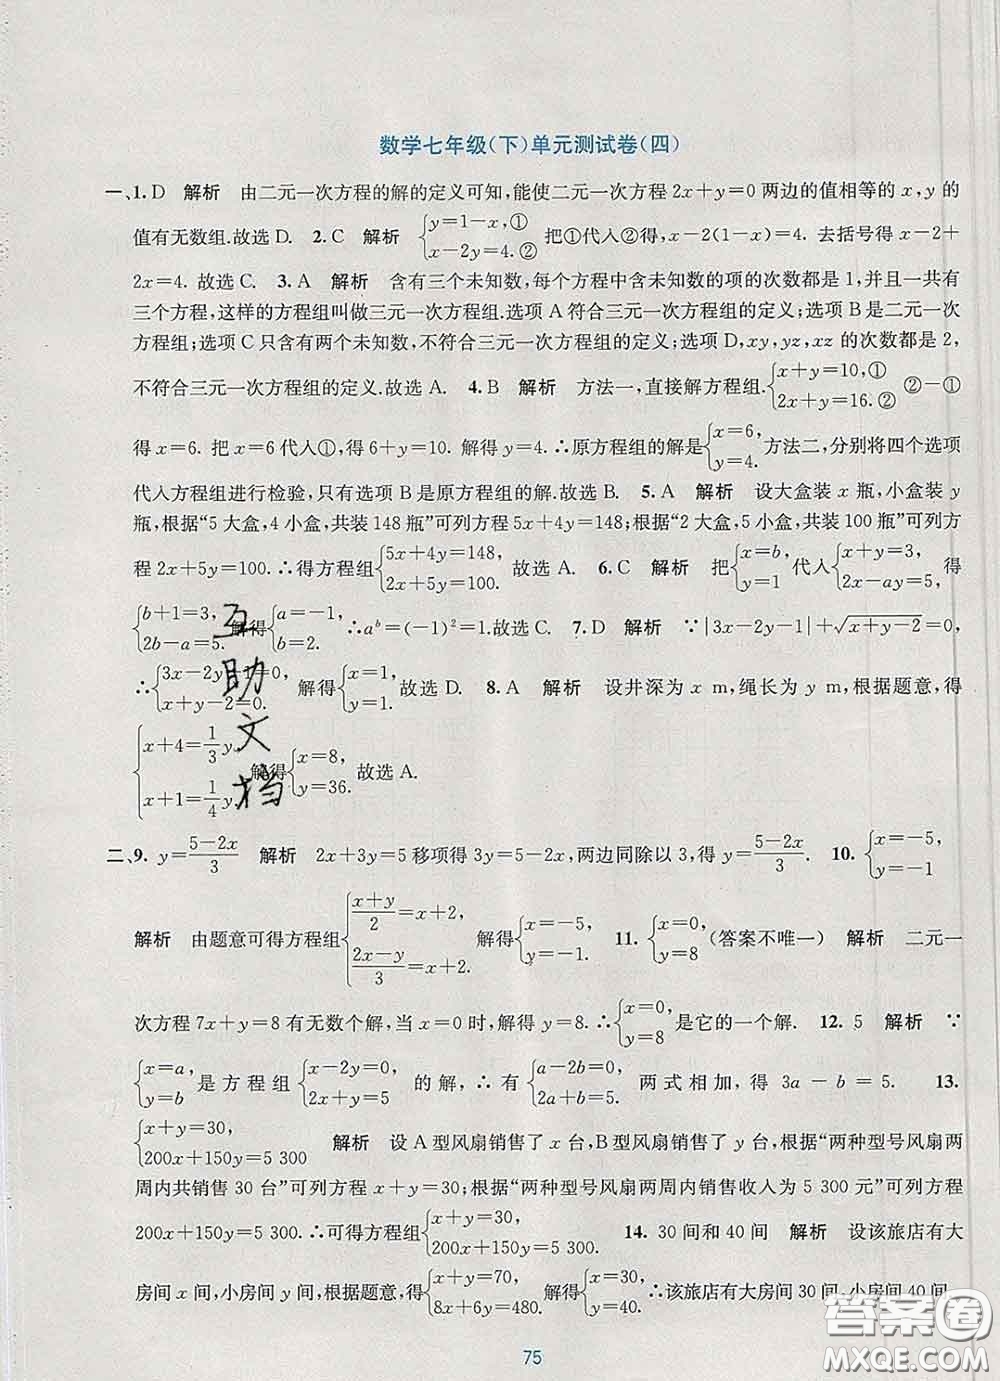 数学七年级(下)单元测试卷(四)
一、1. D 解析 由二元一次方程的解的定义可知,能使二元一次方程 2x+y=0 两边的值相等的 x,y 的
值有无数组.故选 D. 2. C 解析 {y=1-x,① x-2y=4.② 把①代人②得,x-2(1-x)=4. 去括号得 x-2+
2x=4. 故选 C. 3. A 解析 含有三个未知数,每个方程中含未知数的项的次数都是 1,并且一共有
三个方程,这样的方程组叫做三元一次方程组.选项 A 符合三元一次方程组的定义;选项 B 是二元一次方
程组;选项 C 只含有两个未知数,不符合三元一次方程组的定义;选项 D,xy,yz,xz 的次数都是 2,
不符合三元一次方程组的定义.故选 A. 4. B 解析 方法一,直接解方程组.{x+y=10,① 2x+y=16.② ②-①
得 x=6. 把 x=6 代人①,得 6+y=10. 解得 y=4. ∴原方程组的解是{x=6, y=4. 方法二,分别将四个选项
代入方程组进行检验,只有选项 B 是原方程组的解.故选 B. 5. A 解析 设大盒装 x 瓶,小盒装 y
瓶,根据“5 大盒,4 小盒,共装 148 瓶”可列方程 5x+4y=148;根据“2 大盒,5 小盒,共装 100 瓶”可列方
程 2x+5y=100. ∴得方程组{5x+4y=148, 2x+5y=100. 故选 A. 6. C 解析 把{x=b, y=1 代入{x+y=3, 2x-ay=5, 得
{b+1=3, 2b-a=5. 解得{a=-1, b=2. ∴a^b=(-1)²=1.故选 C. 7. D 解析 ∵|3x-2y-1|+√(x+y-2)=0,
∴{3x-2y-1=0, x+y-2=0. 解得{x=1, y=1. 故选 D. 8. A 解析 设井深为 x m,绳长为 y m,根据题意,得
{x+4=1/3 y, x+1=1/4 y. 解得{x=8, y=36. 故选 A.
互助文档
二、9. y=(5-2x)/3 解析 2x+3y=5 移项得 3y=5-2x,两边同除以 3,得 y=(5-2x)/3. 10. {x=-5, y=-1
解析 由题意可得方程组{(x+y)/2=x+2, (2x-y)/3=x+2. 解得{x=-5, y=-1. 11. {x=0, y=8 (答案不唯一) 解析 二元一
次方程 7x+y=8 有无数个解,当 x=0 时,解得 y=8. ∴{x=0, y=8 是它的一个解. 12. 5 解析 ∵
{x=a, y=b 是方程组{x-2y=0, 2x+y=5 的解,∴有{a-2b=0, 2a+b=5. 两式相加,得 3a-b=5. 13.
{x+y=30, 200x+150y=5 300 解析 设 A 型风扇销售了 x 台,B 型风扇销售了 y 台,根据“两种型号风扇两
周内共销售 30 台”可列方程 x+y=30;根据“两种型号风扇两周内销售收入为 5 300 元”可列方程
200x+150y=5 300. ∴可得方程组{x+y=30, 200x+150y=5 300. 14. 30 间和 40 间 解析 设该旅店有大
房间 x 间,小房间 y 间,根据题意,得{x+y=70, 8x+6y=480. 解得{x=30, y=40. ∴该旅店有大房间 30 间,小房间 40 间.
75
答案圈
MXQE.COM